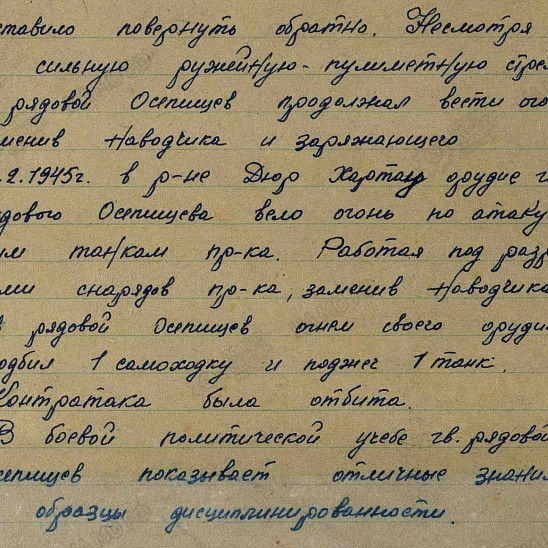 ставило повернуть обратно. Несмотря
сильную ружейную-пулиметную стрел
рядовой Осепищев продолжал вести ого
менив наводчика и заряжающего
.2.1945г. в р-не Дюр Хартау орудие г
дового Осепищева вело огонь по атаку
им танкам пр-ка. Работая под разр
ами снарядов пр-ка, заменив наводчика
в рядовой Осепищев огнем своего орудия
одбил 1 самоходку и поджег 1 танк.
Контратака была отбита.
В боевой политической учебе гв. рядовой
сепищев показывает отличные знания
образцы дисциплинированности.